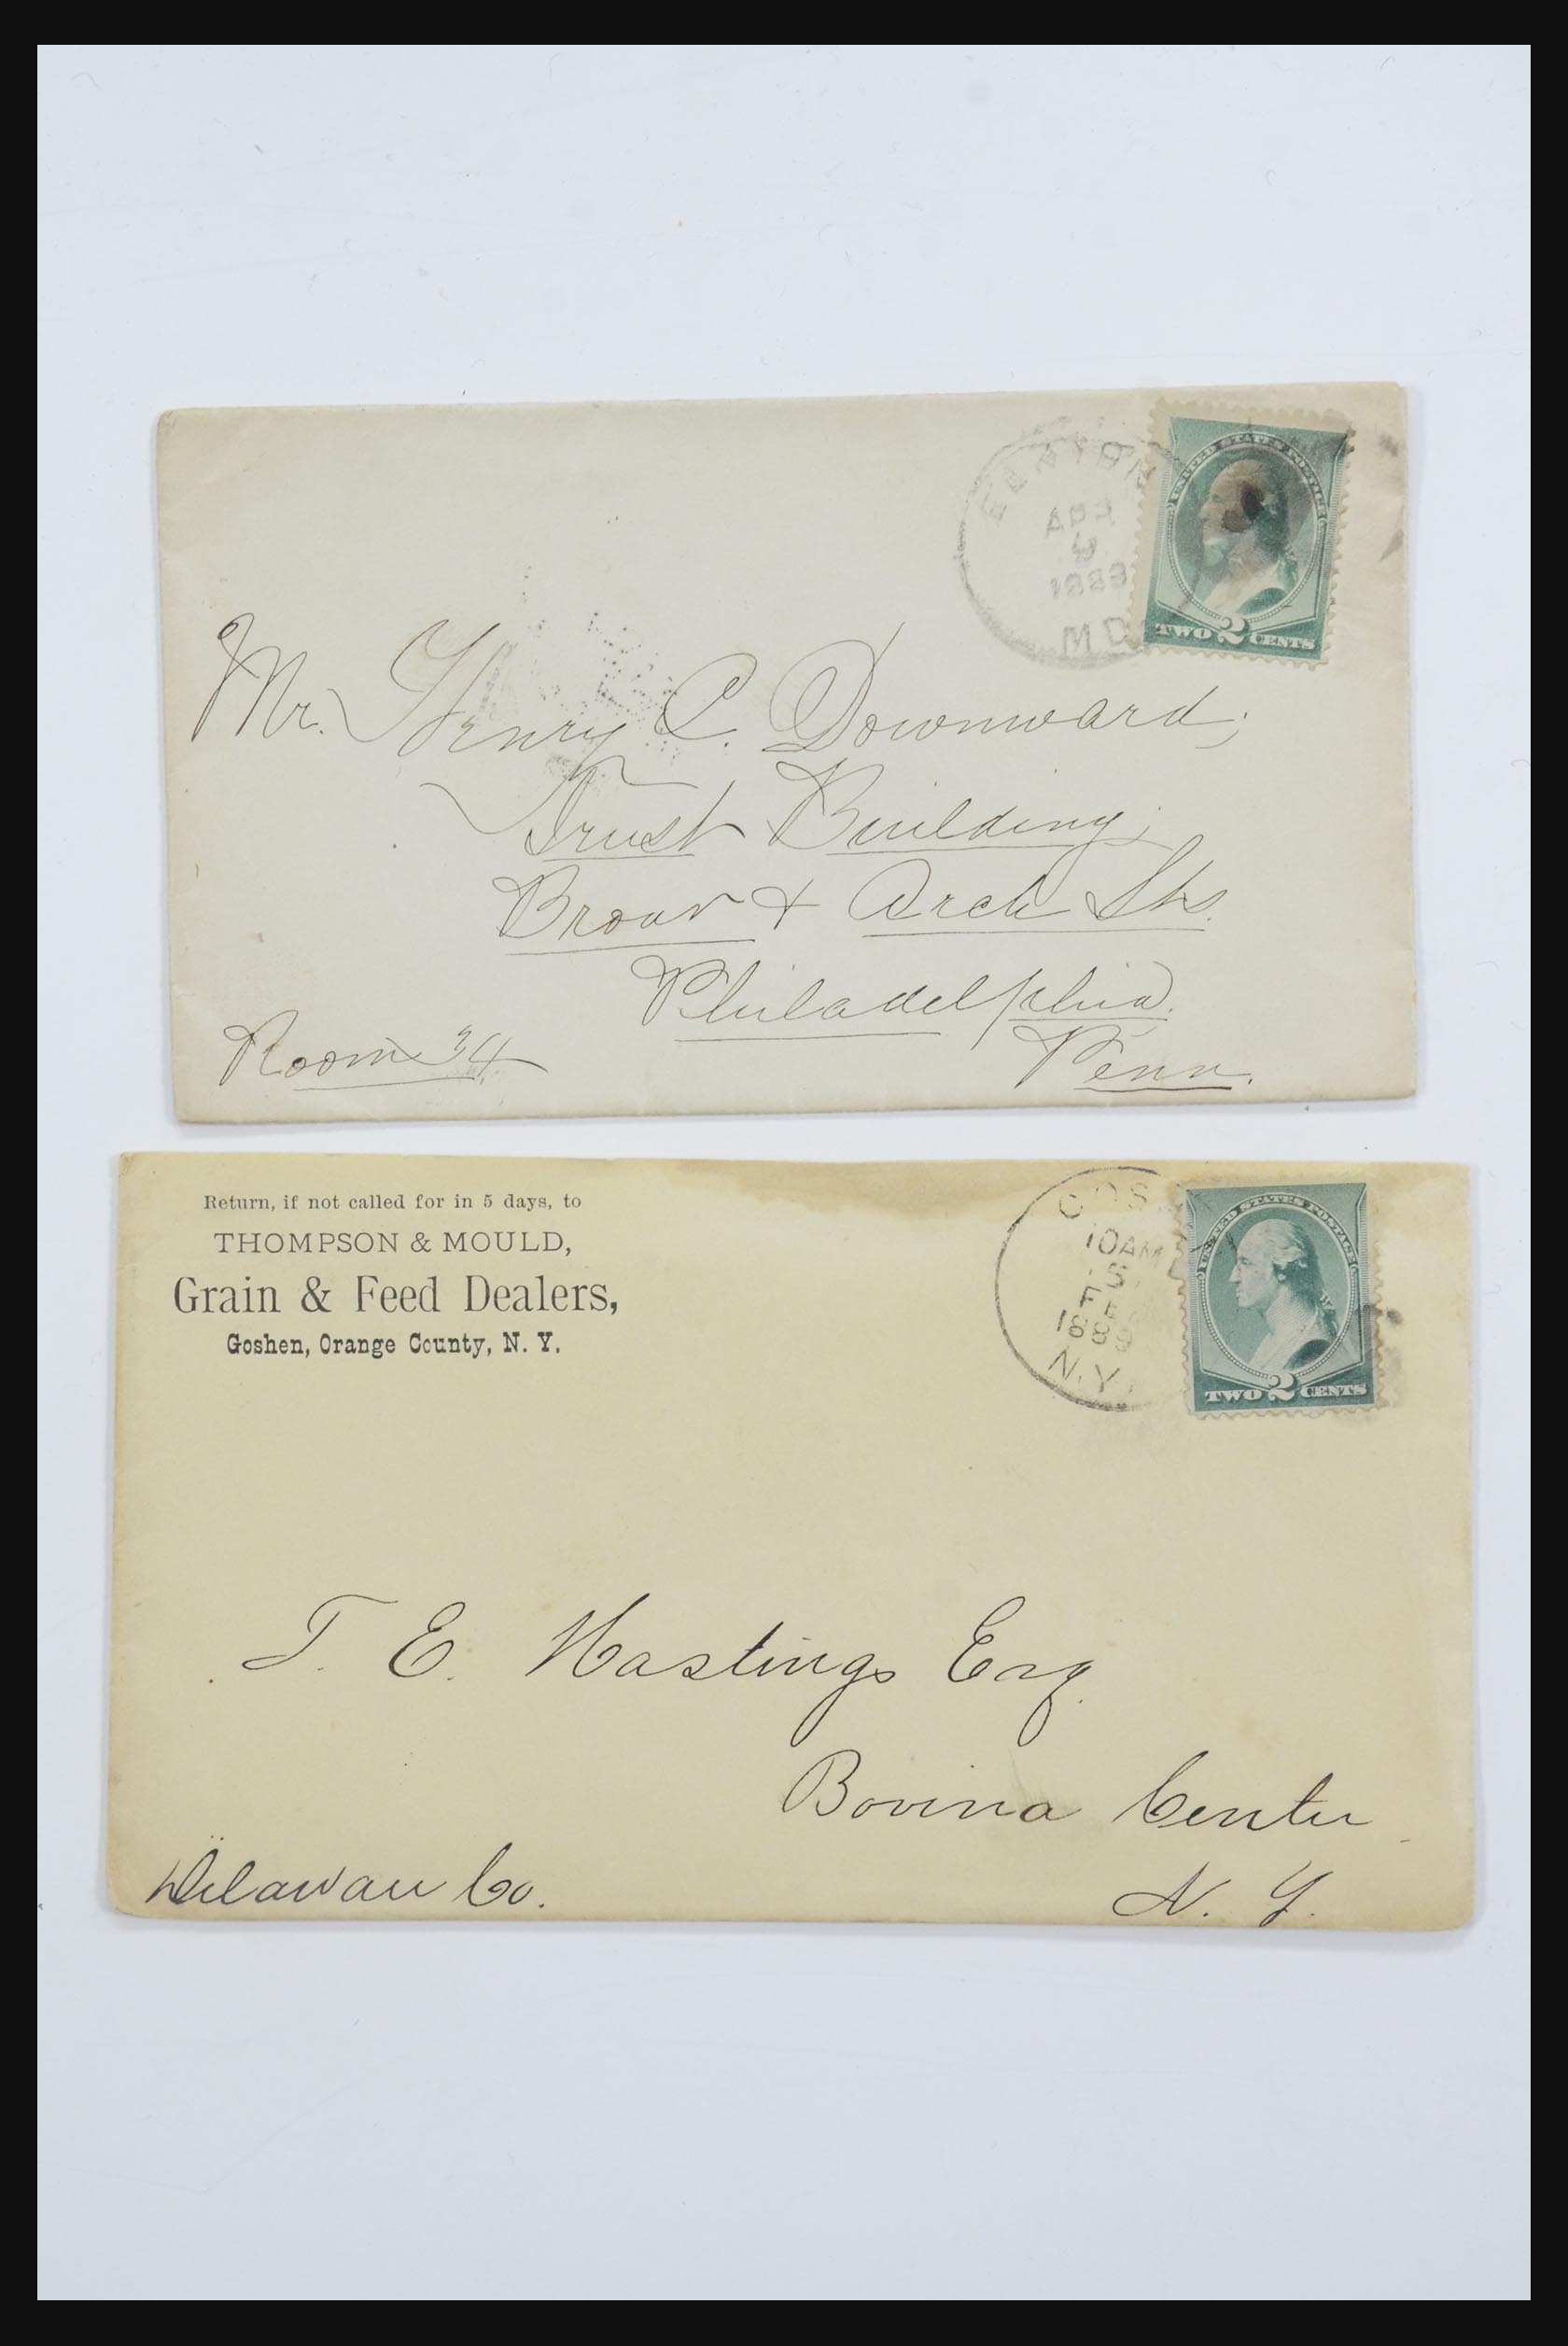 APR
188
MD
UNITED STATES POSTAGE
TWO 2 CENTS
Mr. Henry C. Downward,
Trust Building,
Broad & Arch Sts.
Philadelphia.
Room 34
Penn.
Return, if not called for in 5 days, to
THOMPSON & MOULD,
Grain & Feed Dealers,
Goshen, Orange County, N. Y.
GOS
10AM
1889
N.Y.
UNITED STATES POSTAGE
TWO 2 CENTS
T. E. Hastings Esq.
Bovina Center
Delaware Co.
N. Y.